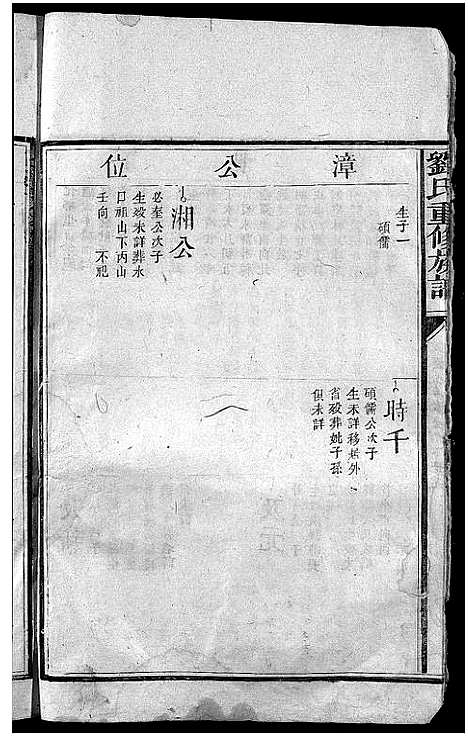 劉氏重修族譜
漳公位
生子一
碩儒
湘公
必奎公次子
生殁未詳葬水
口祖山下丙山
壬向 不祀
時千
碩儒公次子
生未詳移居外
省殁葬姚子孫
俱未詳